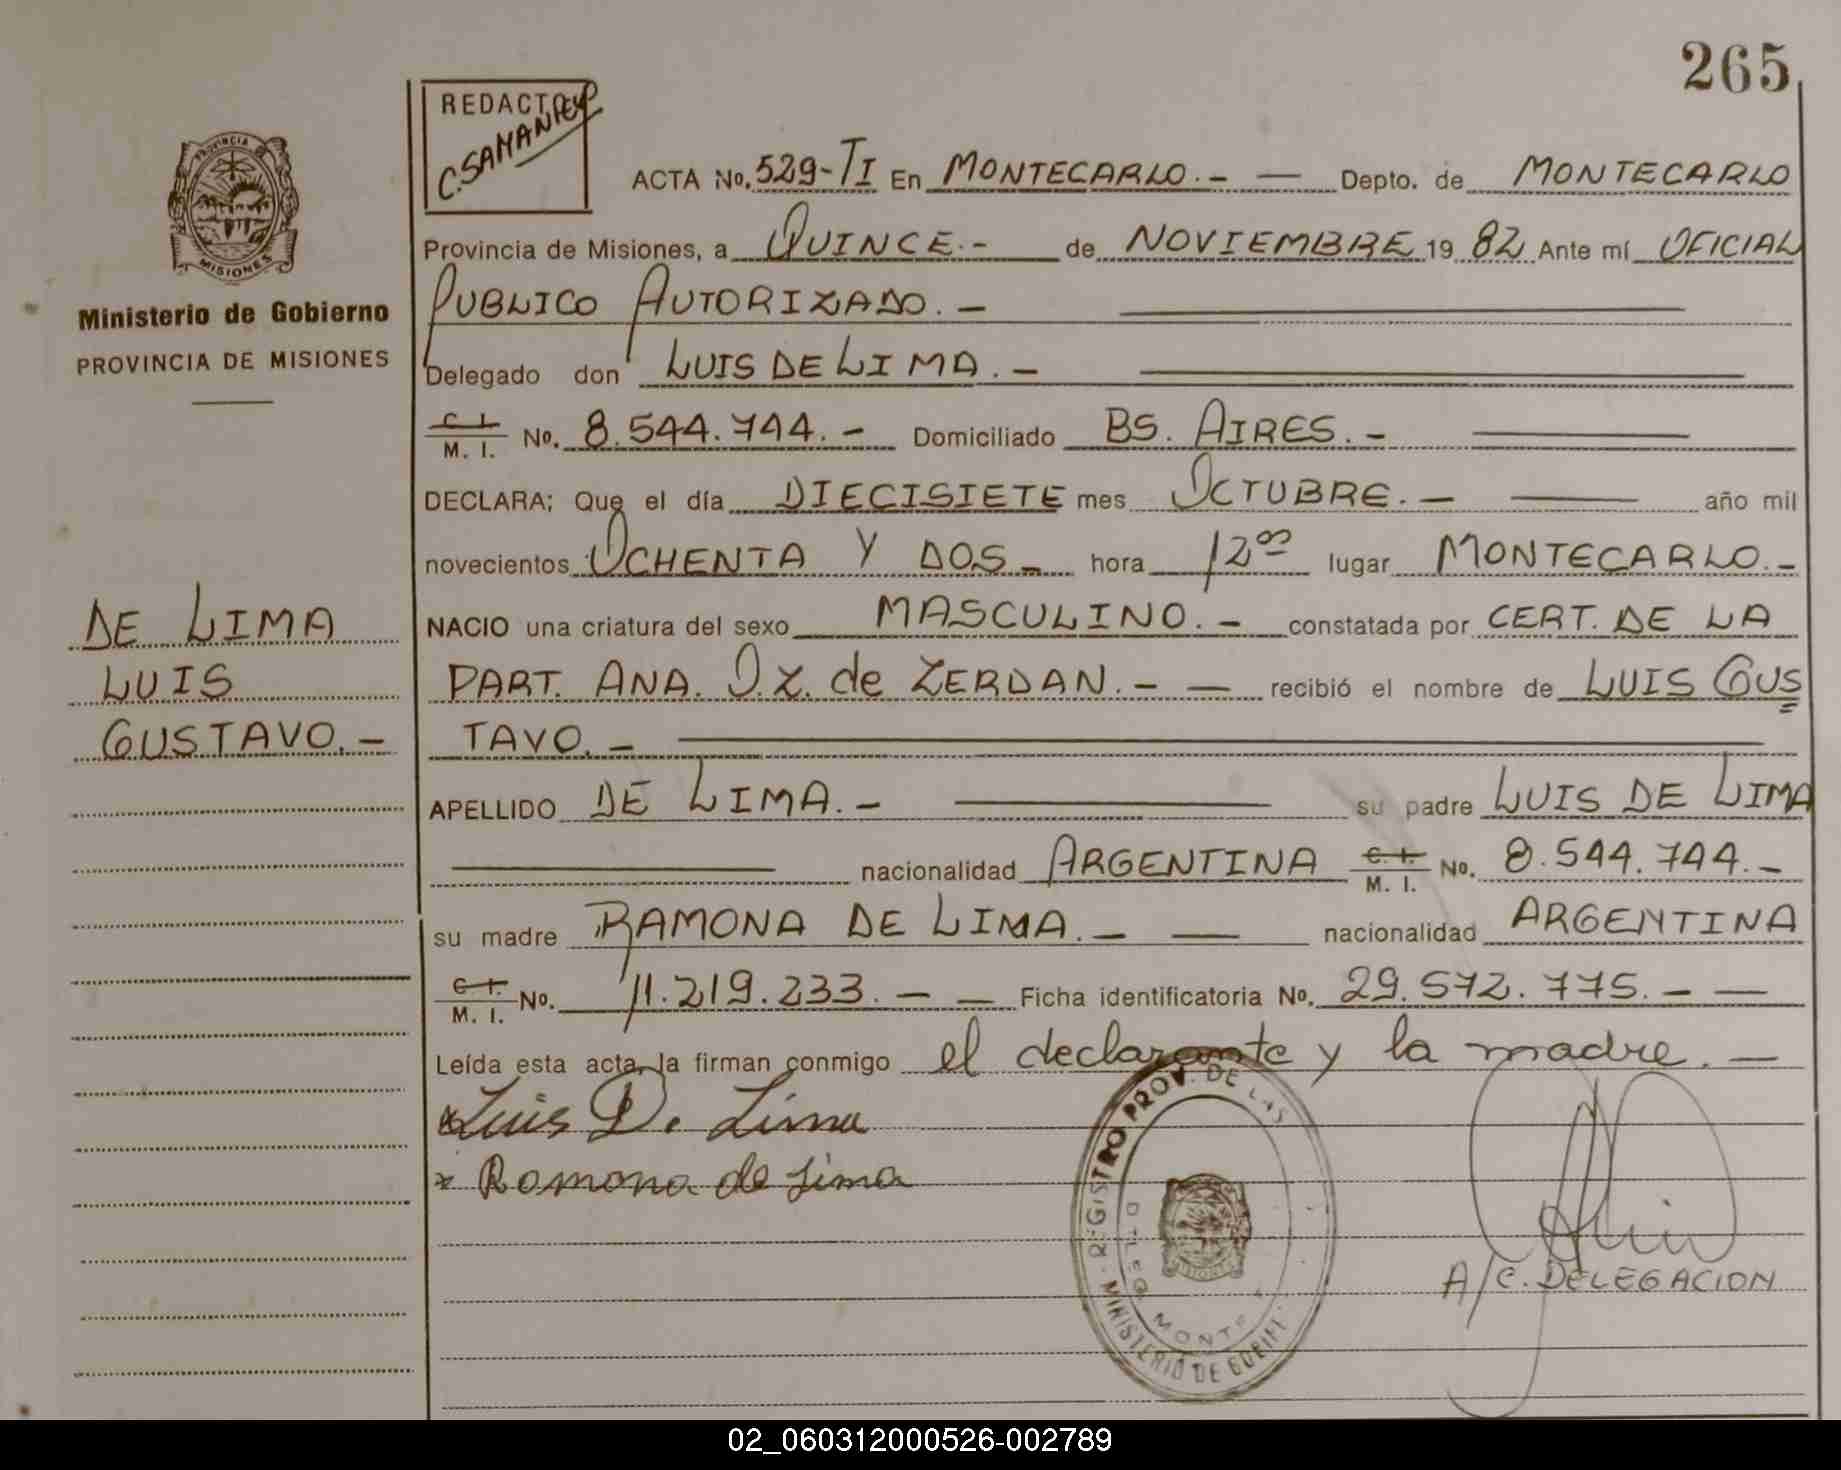 265
REDACTOR
C. SAMANIEGO
PROVINCIA DE
MISIONES
Ministerio de Gobierno
PROVINCIA DE MISIONES
DE LIMA
LUIS
GUSTAVO.-
ACTA No. 529-TI En MONTECARLO.- — Depto. de MONTECARLO
Provincia de Misiones, a QUINCE.- de NOVIEMBRE 19 82 Ante mí OFICIAL
PUBLICO AUTORIZADO.-
Delegado don LUIS DE LIMA.-
C. I. / M. I. No. 8.544.744.- Domiciliado BS. AIRES.-
DECLARA; Que el día DIECISIETE mes OCTUBRE.- año mil
novecientos OCHENTA Y DOS- hora 12 00 lugar MONTECARLO.-
NACIO una criatura del sexo MASCULINO.- constatada por CERT. DE LA
PART. ANA. O.Z. de ZERDAN.- — recibió el nombre de LUIS GUS
TAVO.-
APELLIDO DE LIMA.- su padre LUIS DE LIMA
nacionalidad ARGENTINA C. I. / M. I. No. 8.544.744.-
su madre RAMONA DE LIMA.- — nacionalidad ARGENTINA
C. I. / M. I. No. 11.219.233.- — Ficha identificatoria No. 29.572.775.- —
Leída esta acta, la firman conmigo el declarante y la madre.-
x Luis D. Lima
x Ramona de Lima
REGISTRO PROV. DE LAS
MINISTERIO DE GOBIERNO
MISIONES
A/C. DELEGACION
02_060312000526-002789